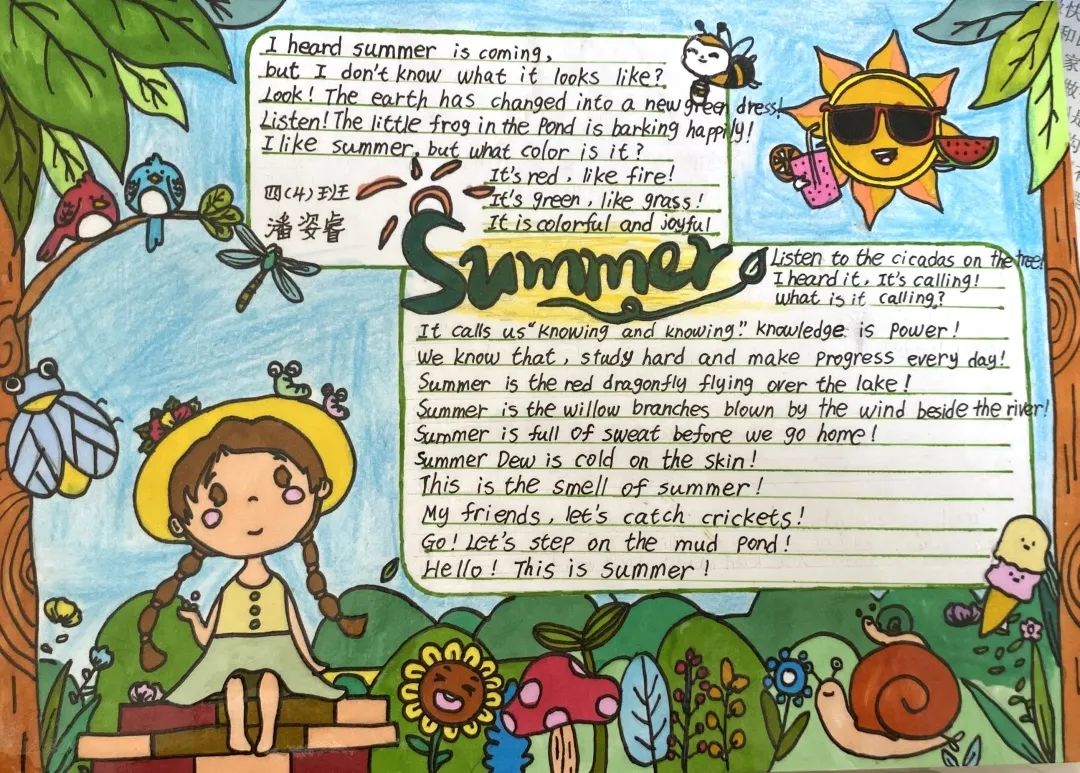 I heard summer is coming,
but I don't know what it looks like?
Look! The earth has changed into a new green dress!
Listen! The little frog in the Pond is barking happily!
I like summer, but what color is it?
It's red, like fire!
四(4)班
It's green, like grass!
潘姿睿
It is colorful and joyful
Summer
Listen to the cicadas on the tree!
I heard it, It's calling!
what is it calling?
It calls us "knowing and knowing". knowledge is Power!
We know that, study hard and make Progress every day!
Summer is the red dragonfly flying over the lake!
Summer is the willow branches blown by the wind beside the river!
Summer is full of sweat before we go home!
Summer Dew is cold on the skin!
This is the smell of summer!
My friends, let's catch crickets!
Go! Let's step on the mud Pond!
Hello! This is summer!